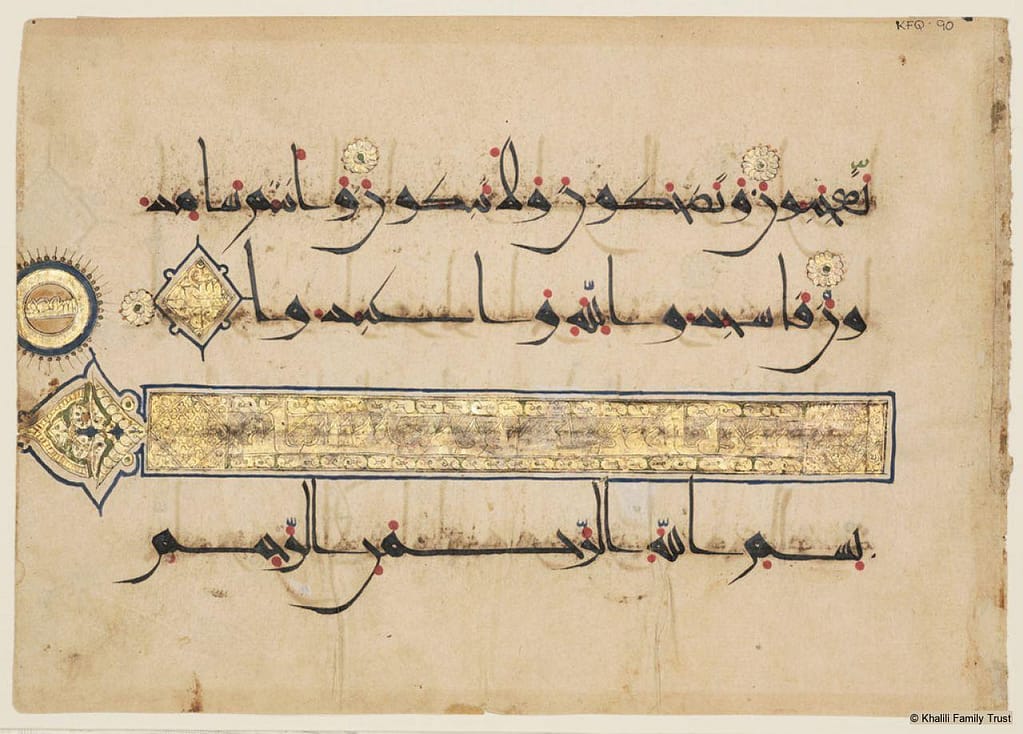 KFQ·90
تعجبون وتضحكون ولا تبكون وانتم سامد
ون فاسجدوا لله واعبدوا
بسم الله الرحمن الرحيم
© Khalili Family Trust